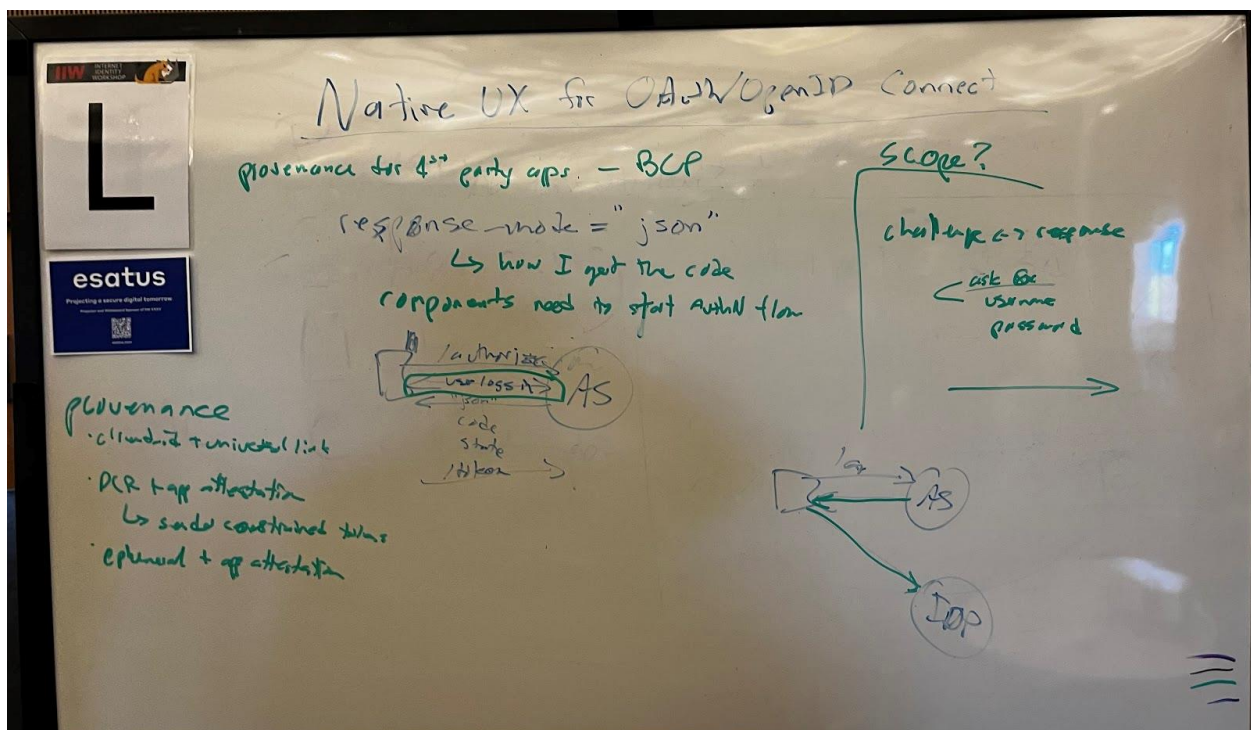 IIW INTERNET IDENTITY WORKSHOP
L
esatus
Projecting a secure digital tomorrow
Native UX for OAuth/OpenID Connect
provenance for 1st party apps. — BCP
response_mode = "json"
↳ how I get the code
components need to start AuthN flow
/authorize
user logs in
"json"
code
state
/token
AS
provenance
· client id + universal link
· DCR + app attestation
↳ sender constrained tokens
· ephemeral + app attestation
Scope?
challenge <-> response
ask for
username
password
AS
IDP